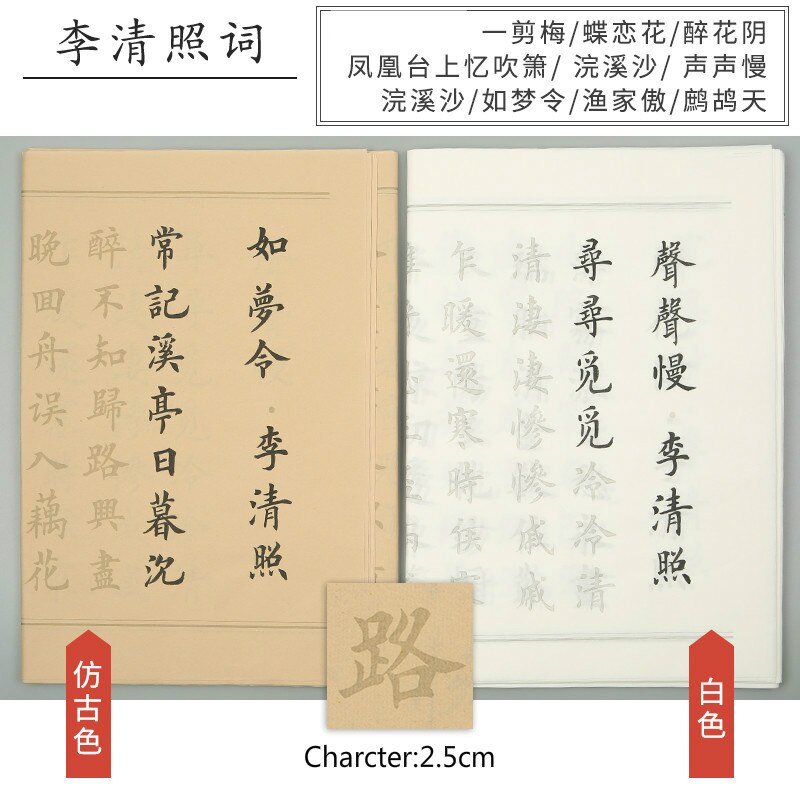 李清照词
一剪梅/蝶恋花/醉花阴
凤凰台上忆吹箫/ 浣溪沙/ 声声慢
浣溪沙/如梦令/渔家傲/鹧鸪天
如夢令·李清照
常記溪亭日暮沉
醉不知歸路興盡
晚回舟误入藕花
聲聲慢·李清照
尋尋觅觅冷冷清
清淒淒慘慘戚戚
乍暖還寒時候
路
仿古色
白色
Charcter:2.5cm